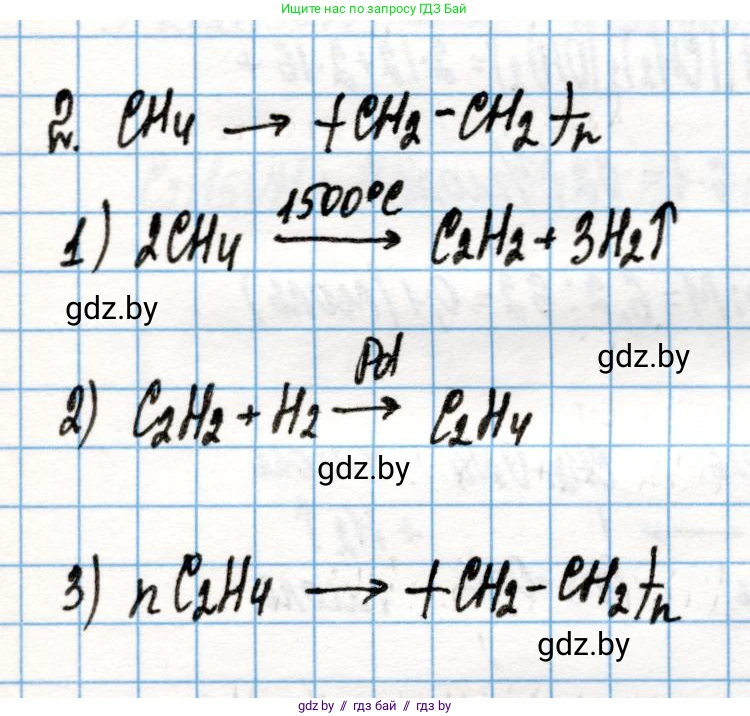 Ищите нас по запросу ГДЗ Бай
2. CH₄ → +CH₂-CH₂+ₙ
1) 2CH₄ 1500°C → C₂H₂ + 3H₂↑
gdz.by
gdz.by
2) C₂H₂ + H₂ Pd → C₂H₄
gdz.by
3) n C₂H₄ → +CH₂-CH₂+ₙ
gdz.by
gdz.by // гдз бай // гдз.by